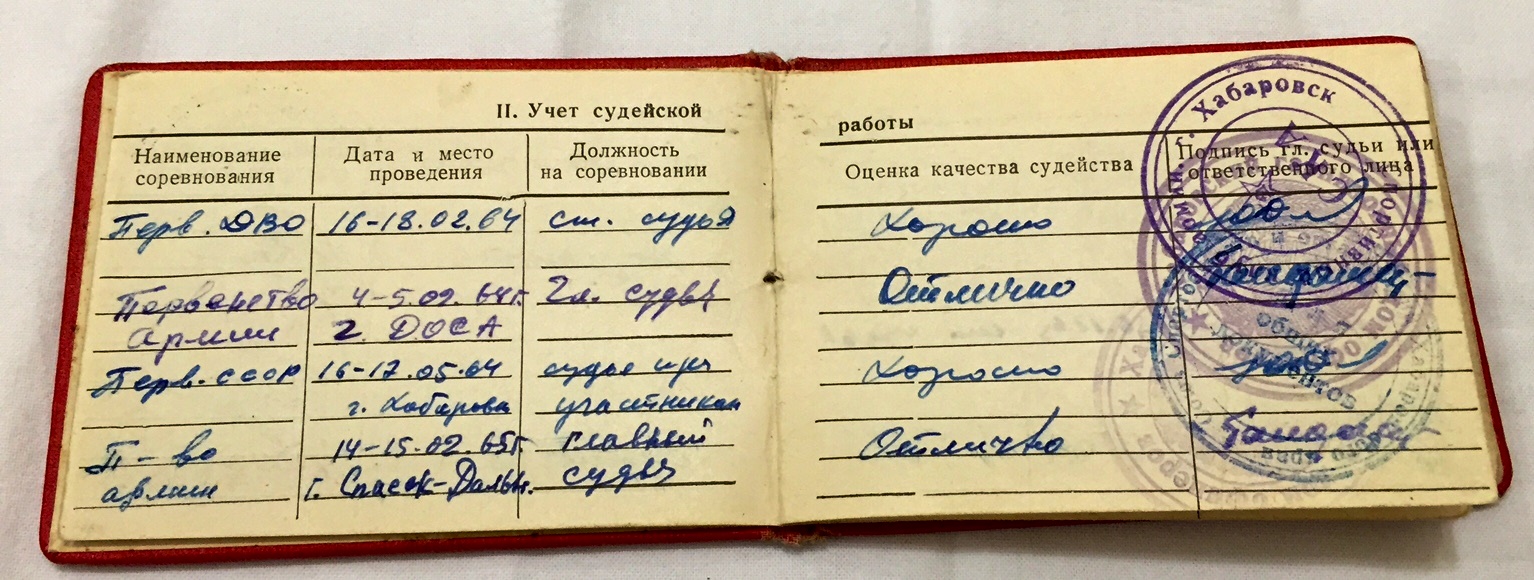 II. Учет судейской работы
Наименование соревнования
Дата и место проведения
Должность на соревновании
Оценка качества судейства
Подпись гл. судьи или ответственного лица
Перв. ДВО 16-18.02.64 ст. судья Хорошо
Первенство 4-5.02.64г. Гл. судья Отлично
Армии г. ДОСА
Перв. СССР 16-17.05.64 судья при Хорошо
г. Хабаровск участниках
П-во 14-15.02.65г. главный Отлично
армии г. Спасск-Дальн. судья
Хабаровск
общих
документов